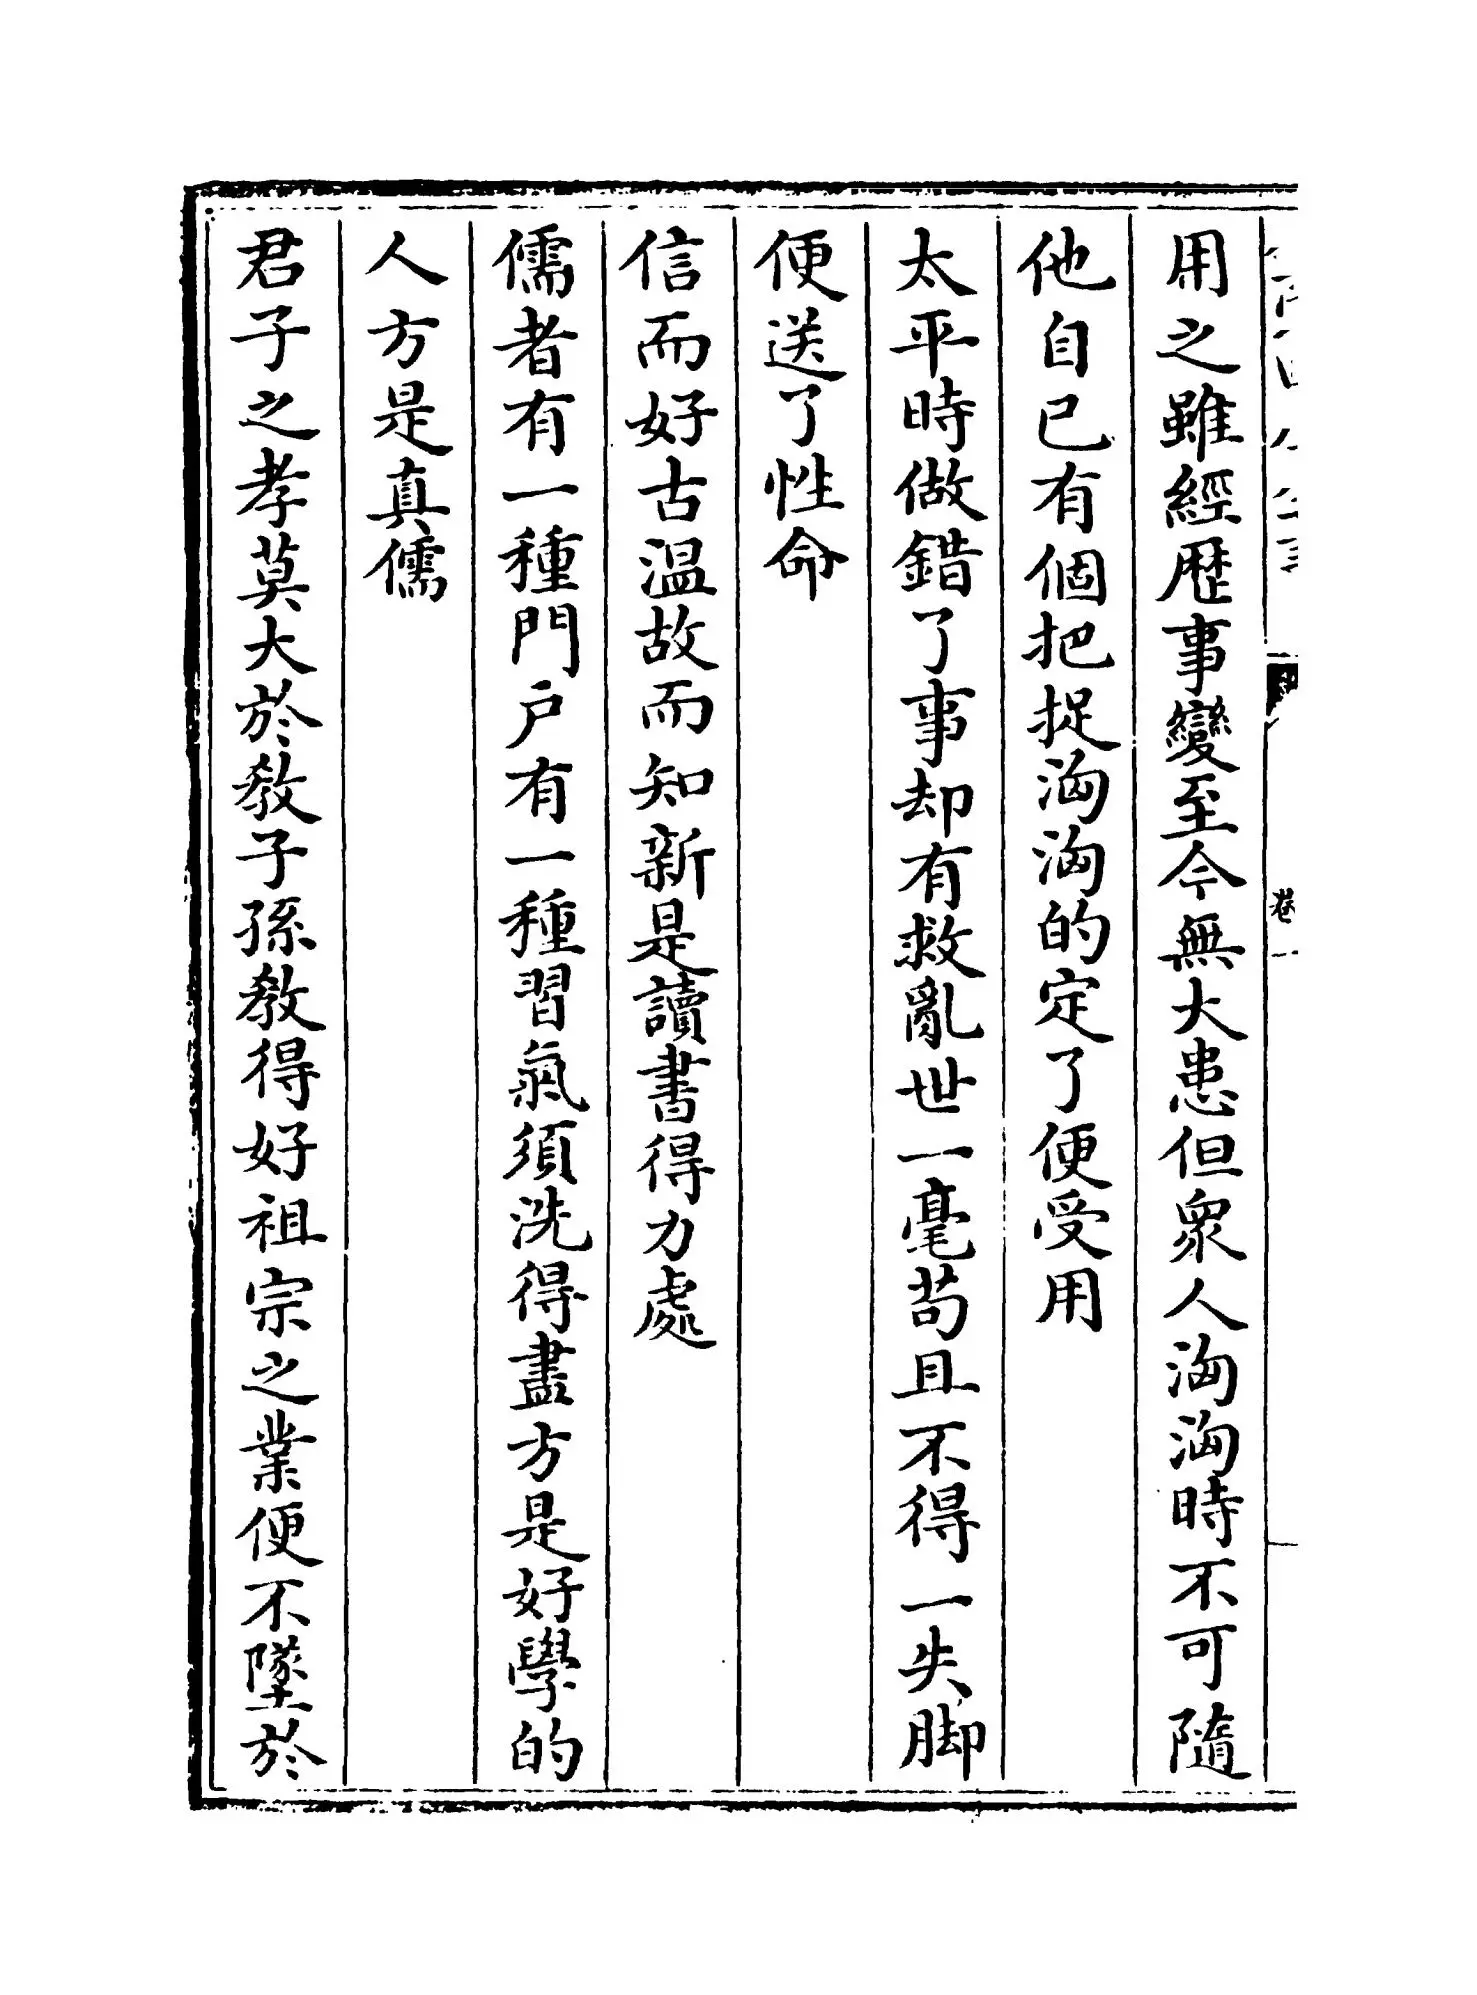 用之雖經歴事變至今無大患但衆人洶洶時不可隨
他自已有個把捉洶洶的定了便受用
太平時做錯了事却有救亂世一毫茍且不得一失脚
便送了性命
信而好古温故而知新是讀書得力處
儒者有一種門户有一種習氣須洗得盡方是好學的
人方是真儒
君子之孝莫大於敎子孫敎得好祖宗之業便不墜於
卷一